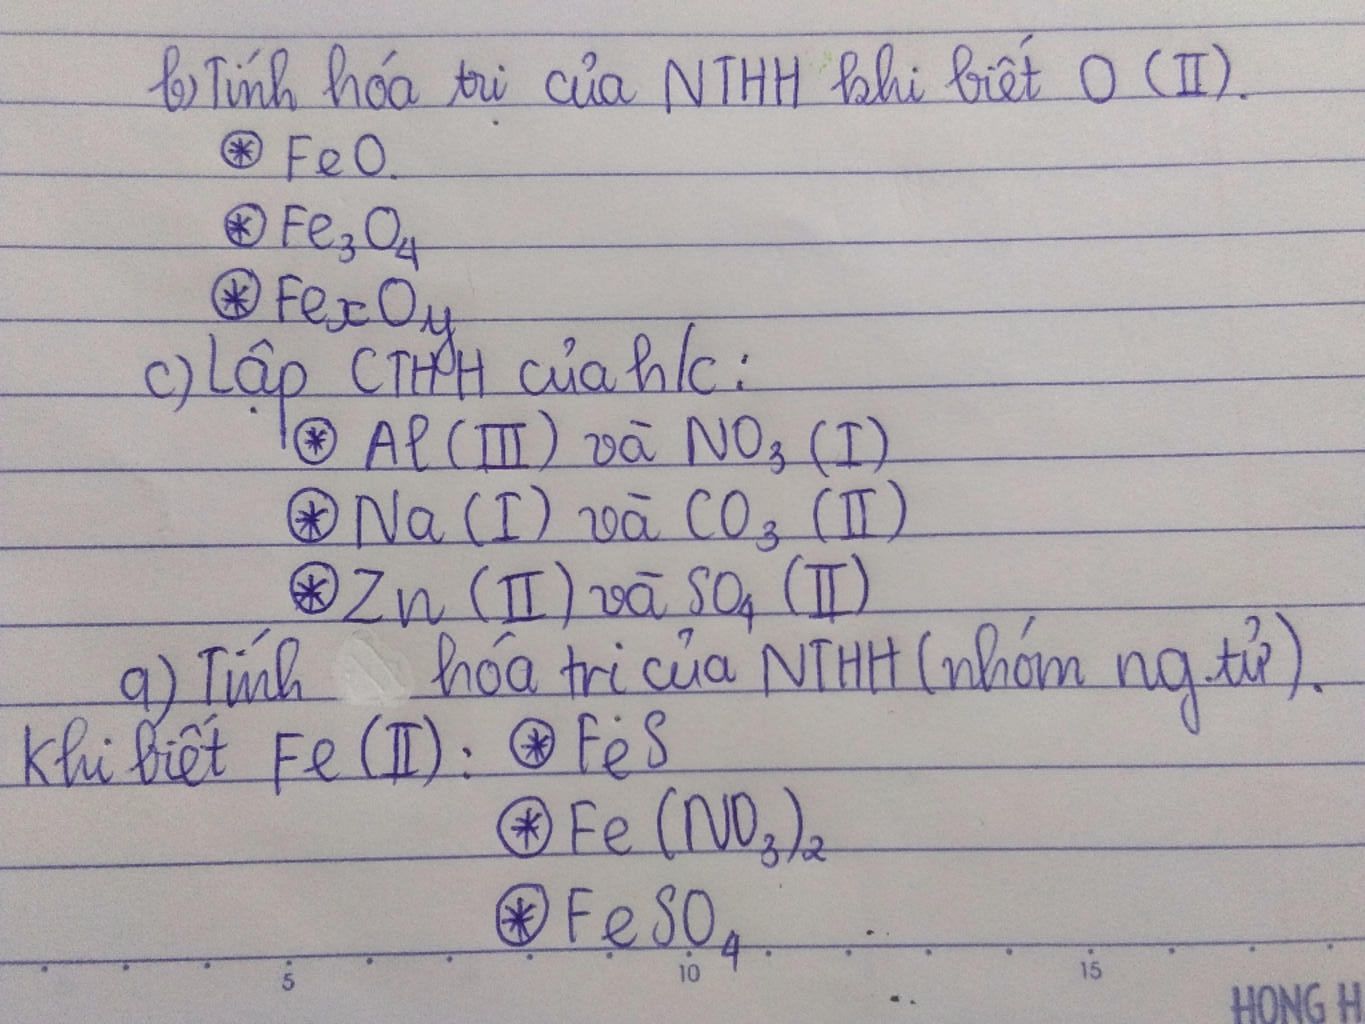 b) Tính hóa trị của NTHH khi biết O (II).
⊛ FeO.
⊛ Fe₃O₄
⊛ FexOy
c) Lập CTHH của h/c:
⊛ Al (III) và NO₃ (I)
⊛ Na (I) và CO₃ (II)
⊛ Zn (II) và SO₄ (II)
a) Tính hóa trị của NTHH (nhóm ng.tử).
Khi biết Fe (II): ⊛ FeS
⊛ Fe (NO₃)₂
⊛ FeSO₄
5 10 15
HONG H